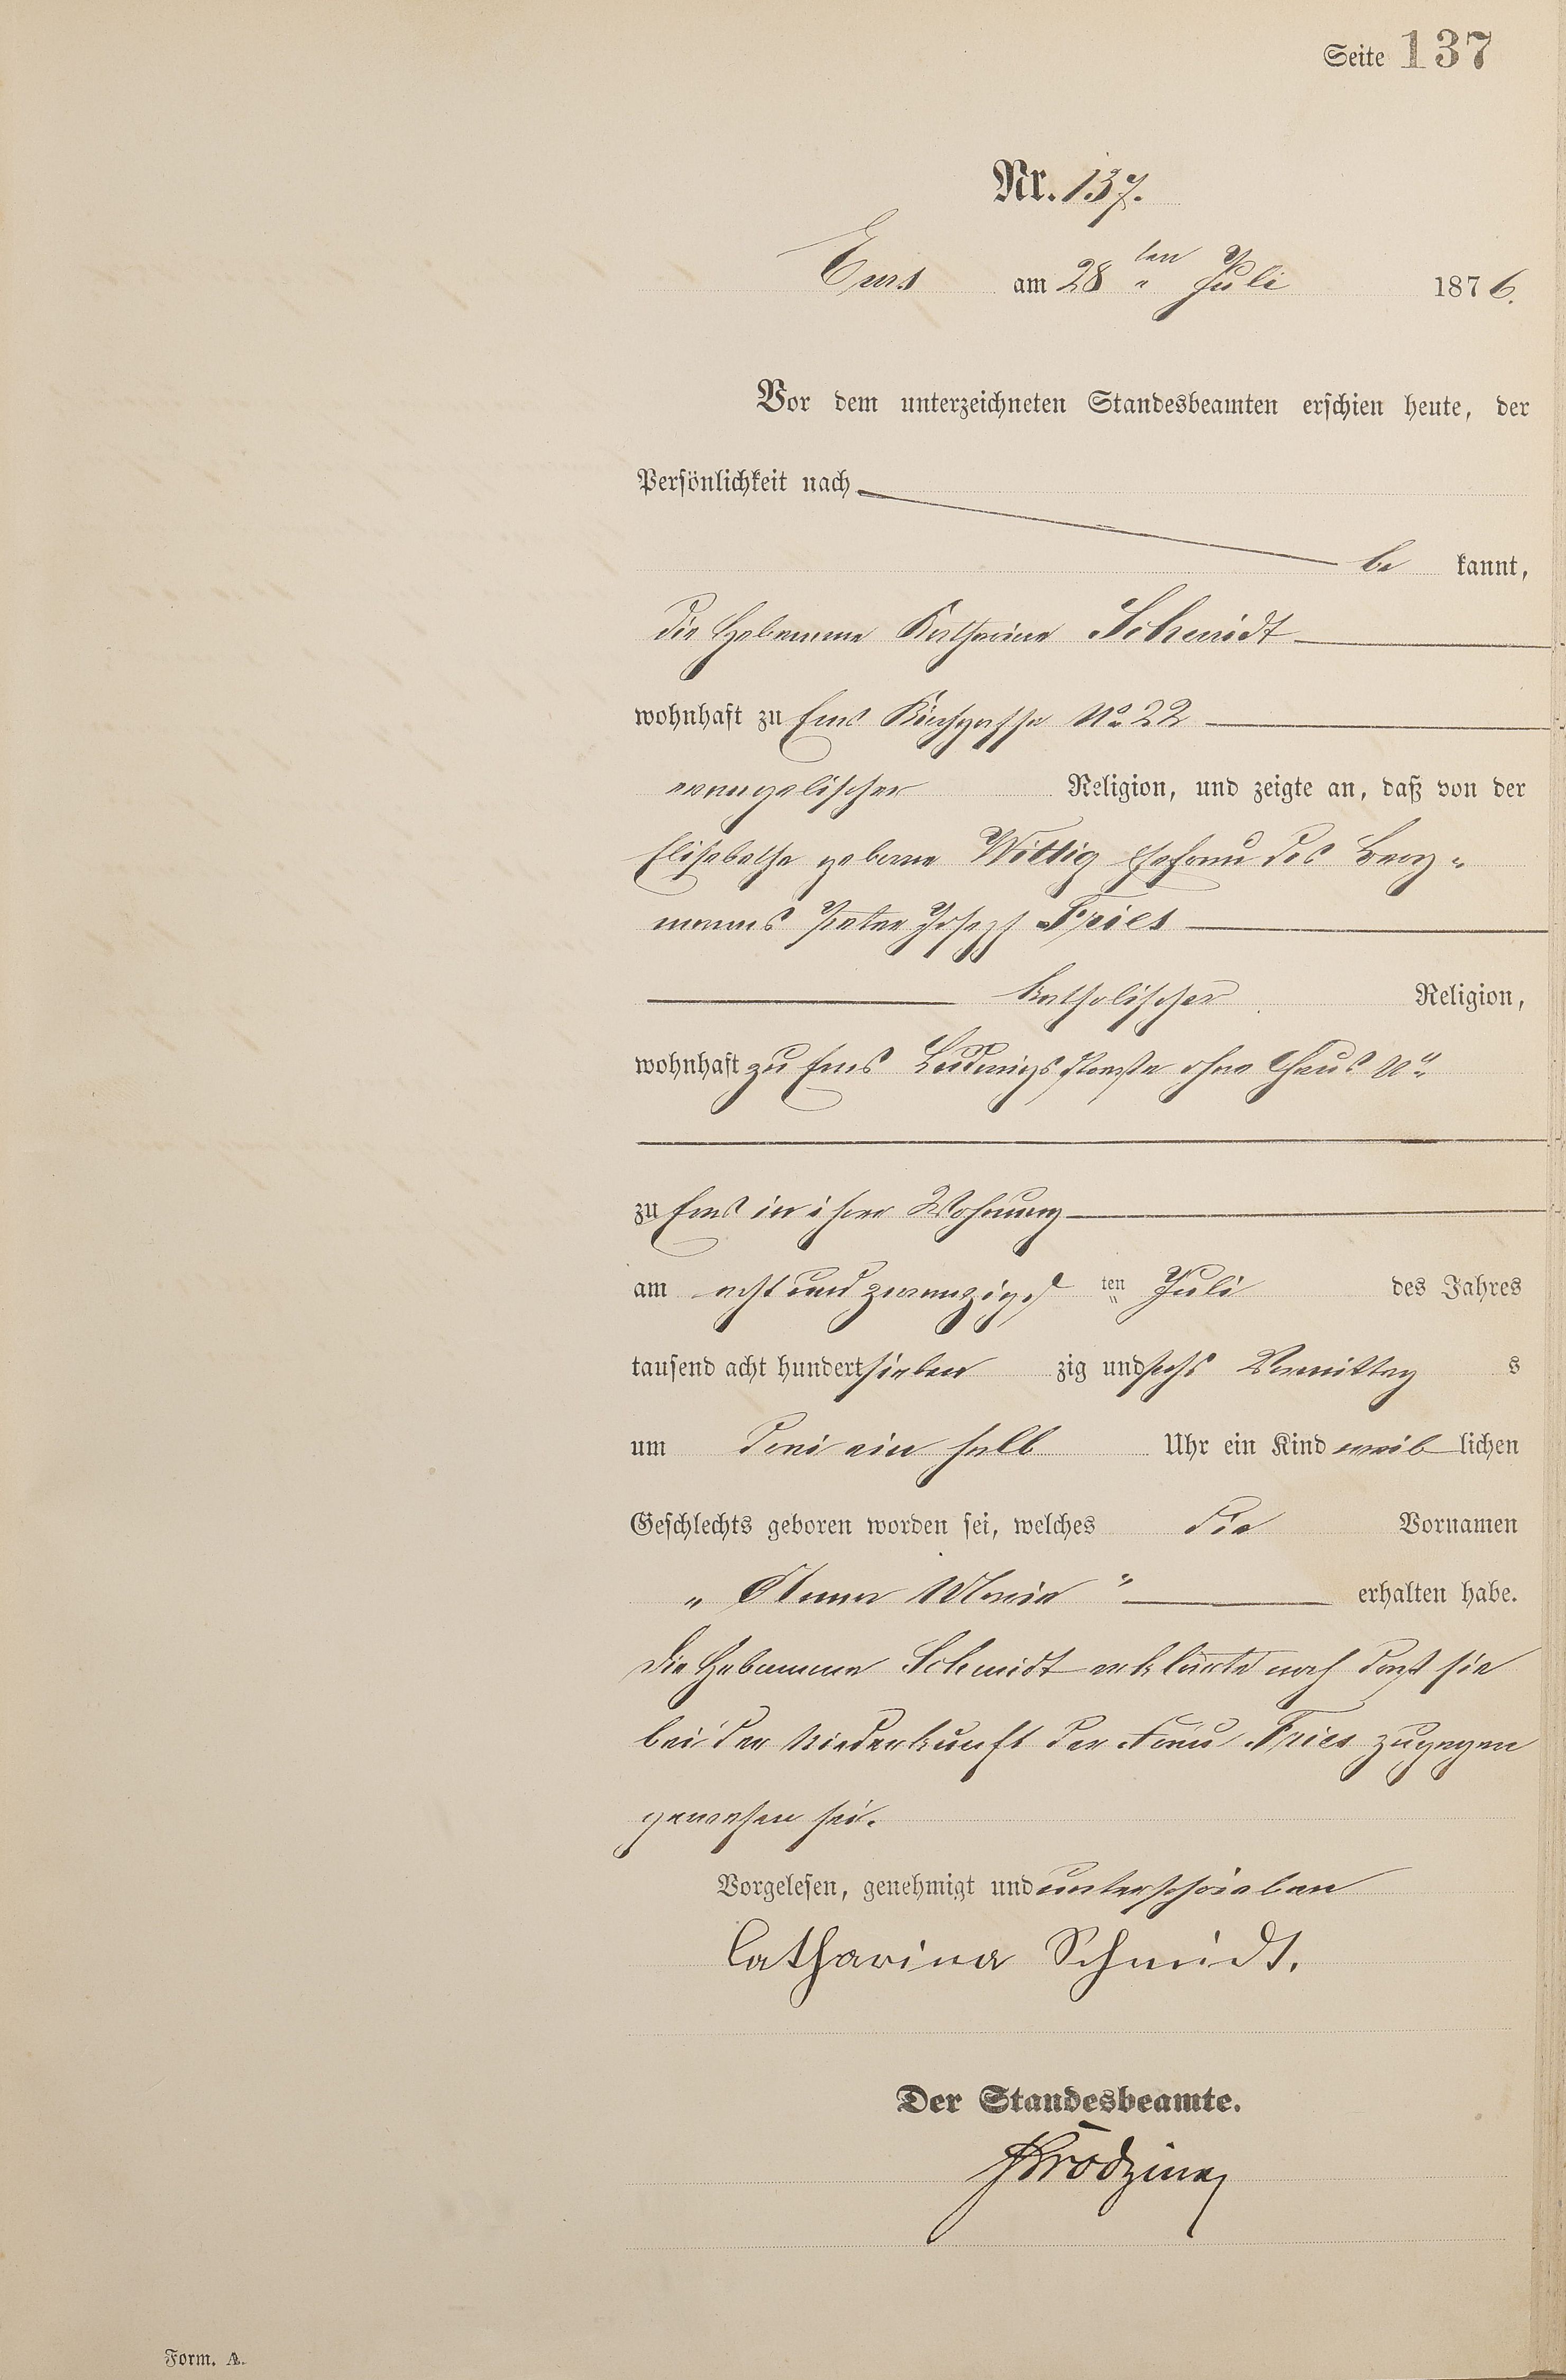 Seite 137
Nr. 137.
Ems am 28 ten Juli 1876.
Vor dem unterzeichneten Standesbeamten erschien heute, der
Persönlichkeit nach
be kannt,
die Hebamme Katharine Schmidt
wohnhaft zu Ems Kirchgasse No 22
evangelischer Religion, und zeigte an, daß von der
Elisabethe geborne Wittig Ehefrau des Berg-
manns Peter Joseph Fries
katholischer Religion,
wohnhaft zu Ems Ludwigsstraße ohne Haus No
zu Ems in ihrer Wohnung
am acht und zwanzigst ten Juli des Jahres
tausend acht hundert sieben zig und sechs Vormittag s
um drei ein halb Uhr ein Kind weib lichen
Geschlechts geboren worden sei, welches die Vornamen
„ Anna Maria " erhalten habe.
Die Hebamme Schmidt erklärte noch daß sie
bei der Niederkunft der Frau Fries zugegen
gewesen sei.
Vorgelesen, genehmigt und unterschrieben
Catharina Schmidt.
Der Standesbeamte.
Form. A.